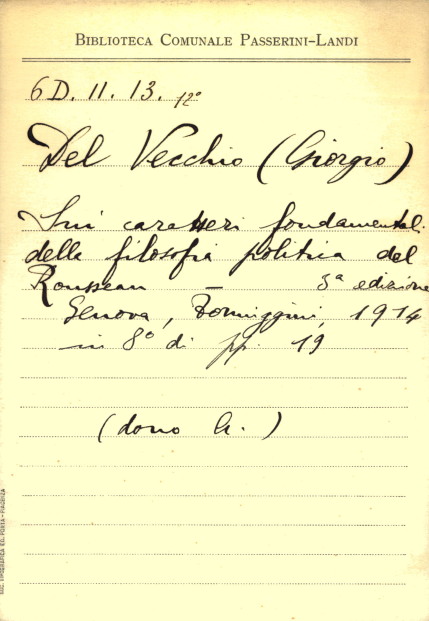 BIBLIOTECA COMUNALE PASSERINI-LANDI
6 D. 11. 13. 12°
Del Vecchio (Giorgio)
Sui caratteri fondamentali
della filosofia politica del
Rousseau — 3ª edizione
Genova, Formiggini, 1914
in 8° di pp. 19
(dono A.)
SOC. TIPOGRAFICA ED. PORTA - PIACENZA